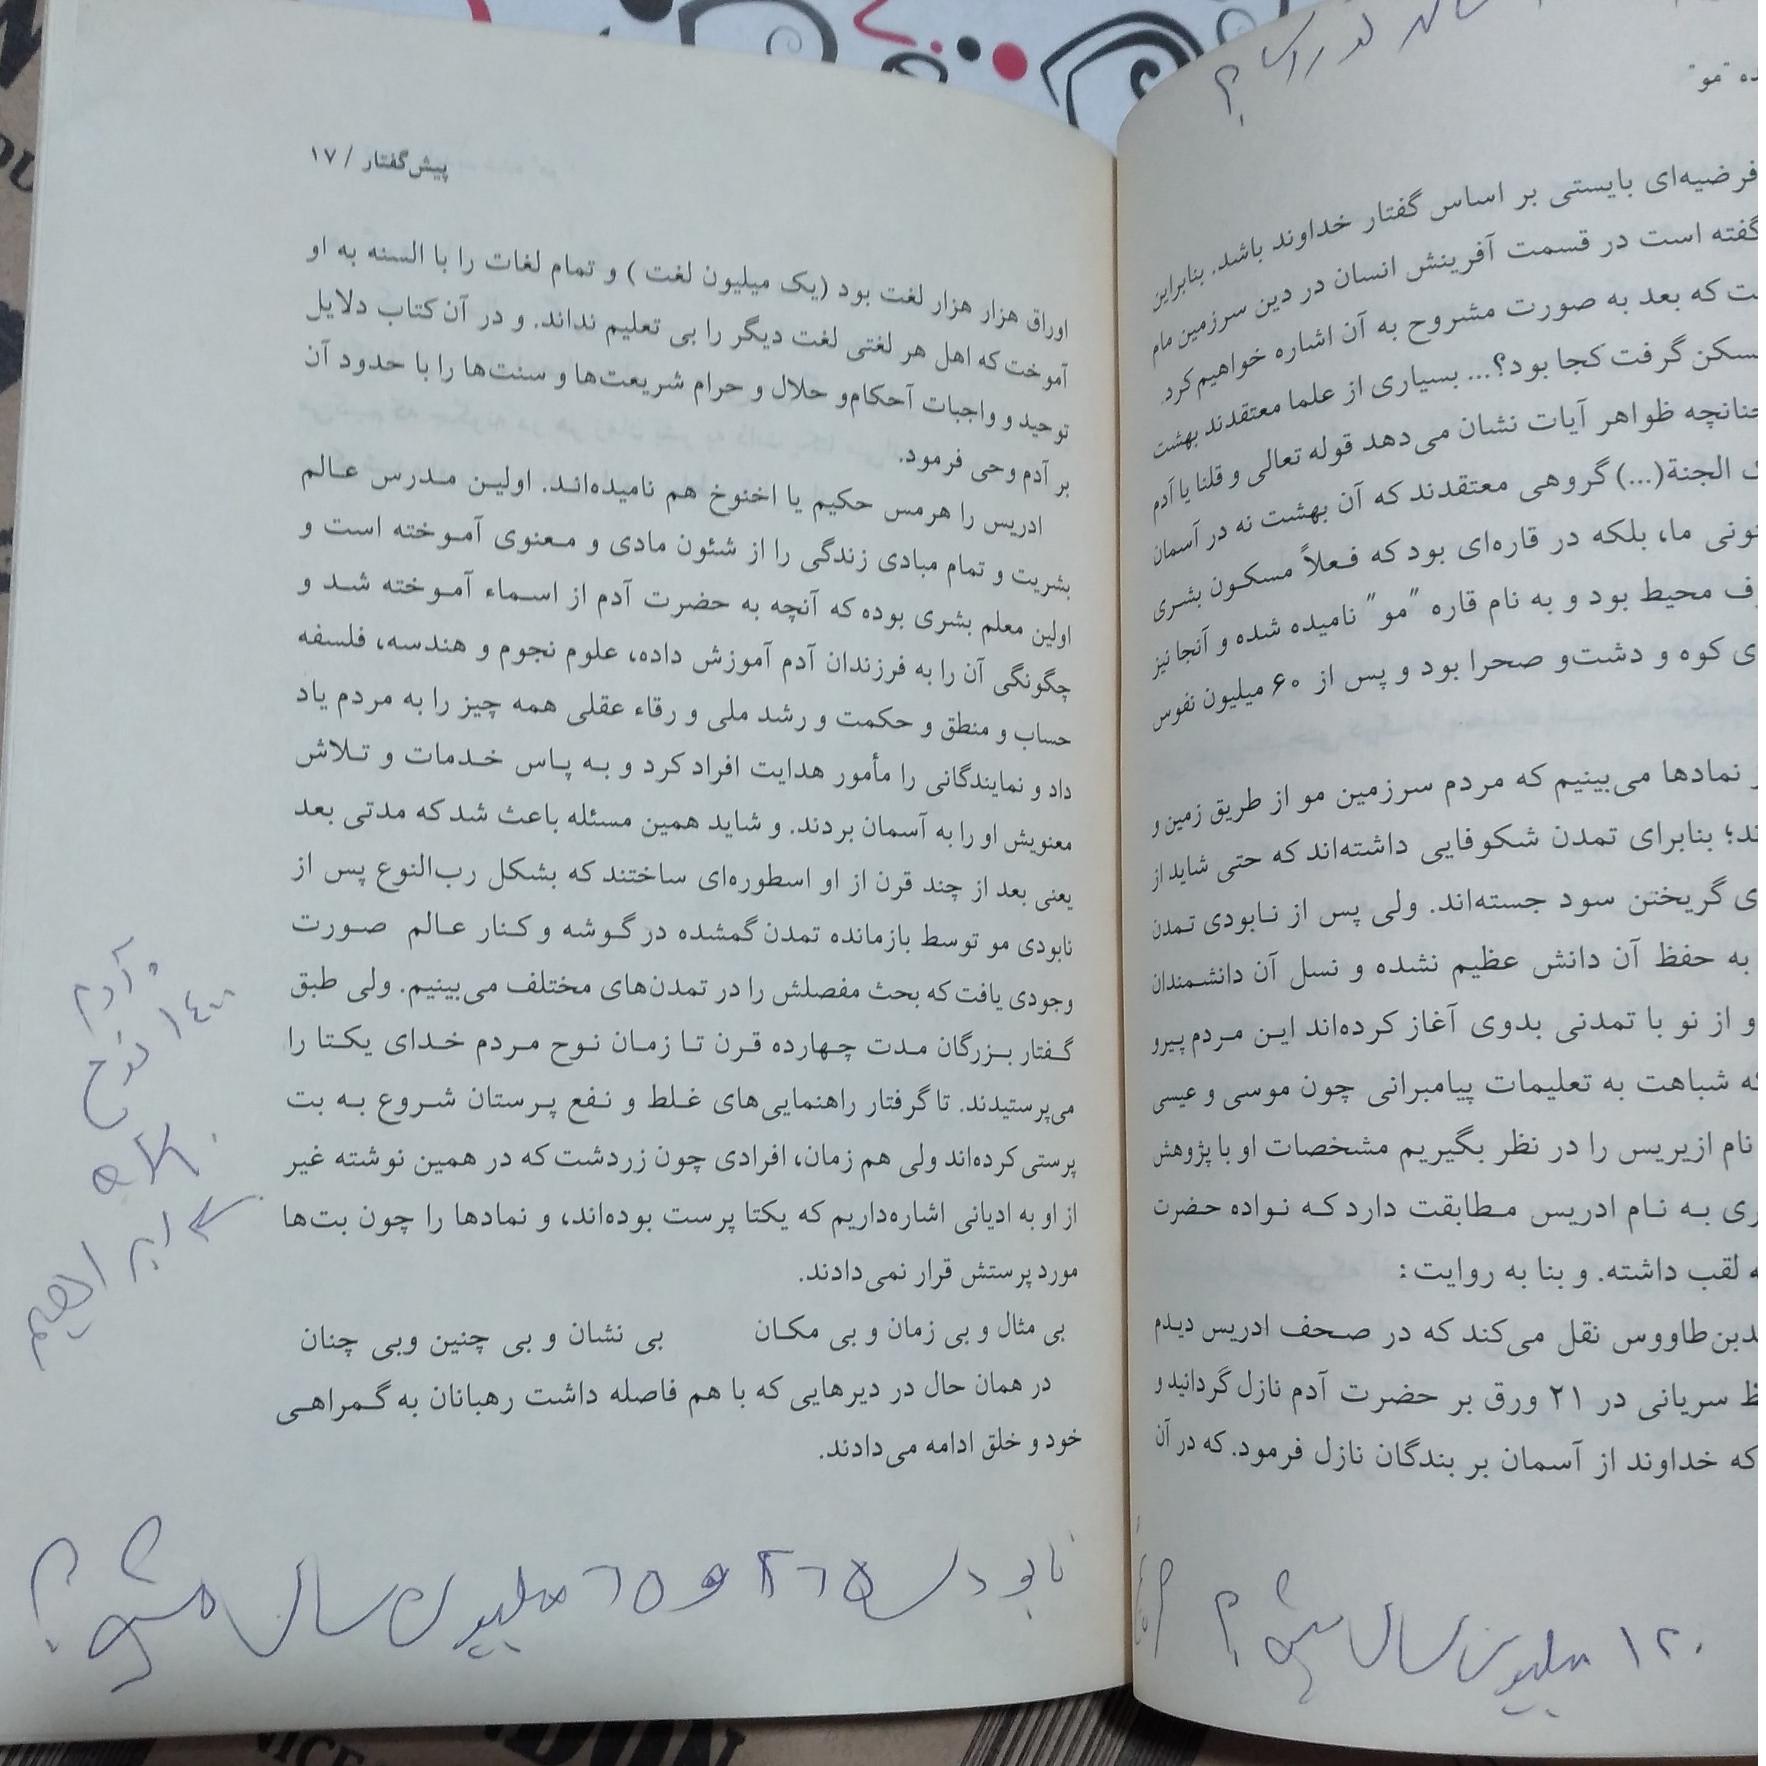 ده "مو"
فرضیه‌ای بایستی بر اساس گفتار خداوند باشد. بنابراین
گفته است در قسمت آفرینش انسان در دین سرزمین مام
ت که بعد به صورت مشروح به آن اشاره خواهیم کرد.
سکن گرفت کجا بود؟... بسیاری از علما معتقدند بهشت
چنانچه ظواهر آیات نشان می‌دهد قوله تعالی و قلنا یا آدم
ک الجنة(...) گروهی معتقدند که آن بهشت نه در آسمان
نونی ما، بلکه در قاره‌ای بود که فعلاً مسکون بشری
ف محیط بود و به نام قاره "مو" نامیده شده و آنجا نیز
ی کوه و دشت‌و صحرا بود و پس از ۶۰ میلیون نفوس
ز نمادها می‌بینیم که مردم سرزمین مو از طریق زمین و
ند؛ بنابرای تمدن شکوفایی داشته‌اند که حتی شاید از
ی گریختن سود جسته‌اند. ولی پس از نابودی تمدن
به حفظ آن دانش عظیم نشده و نسل آن دانشمندان
و از نو با تمدنی بدوی آغاز کرده‌اند این مردم پیرو
که شباهت به تعلیمات پیامبرانی چون موسی و عیسی
نام ازیریس را در نظر بگیریم مشخصات او با پژوهش
ری به نام ادریس مطابقت دارد که نواده حضرت
ه لقب داشته. و بنا به روایت:
دبن‌طاووس نقل می‌کند که در صحف ادریس دیدم
ظ سریانی در ۲۱ ورق بر حضرت آدم نازل گردانید و
که خداوند از آسمان بر بندگان نازل فرمود. که در آن
۱۲۰ میلیون سال پیش؟
پیش‌گفتار / ۱۷
اوراق هزار هزار لغت بود (یک میلیون لغت ) و تمام لغات را با السنه به او
آموخت که اهل هر لغتی لغت دیگر را بی تعلیم نداند. و در آن کتاب دلایل
توحید و واجبات آحکام‌و حلال و حرام شریعت‌ها و سنت‌ها را با حدود آن
بر آدم وحی فرمود.
ادریس را هرمس حکیم یا اخنوخ هم نامیده‌اند. اولین مدرس عالم
بشریت و تمام مبادی زندگی را از شئون مادی و معنوی آموخته است و
اولین معلم بشری بوده که آنچه به حضرت آدم از اسماء آموخته شد و
چگونگی آن را به فرزندان آدم آموزش داده، علوم نجوم و هندسه، فلسفه
حساب و منطق و حکمت و رشد ملی و رقاء عقلی همه چیز را به مردم یاد
داد و نمایندگانی را مأمور هدایت افراد کرد و به پاس خدمات و تلاش
معنویش او را به آسمان بردند. و شاید همین مسئله باعث شد که مدتی بعد
یعنی بعد از چند قرن از او اسطوره‌ای ساختند که بشکل رب‌النوع پس از
نابودی مو توسط بازمانده تمدن گمشده در گوشه و کنار عالم صورت
وجودی یافت که بحث مفصلش را در تمدن‌های مختلف می‌بینیم. ولی طبق
گفتار بزرگان مدت چهارده قرن تا زمان نوح مردم خدای یکتا را
می‌پرستیدند. تا گرفتار راهنمایی‌های غلط و نفع پرستان شروع به بت
پرستی کرده‌اند ولی هم زمان، افرادی چون زردشت که در همین نوشته غیر
از او به ادیانی اشاره‌داریم که یکتا پرست بوده‌اند، و نمادها را چون بت‌ها
مورد پرستش قرار نمی‌دادند.
بی مثال و بی زمان و بی مکان بی نشان و بی چنین وبی چنان
در همان حال در دیرهایی که با هم فاصله داشت رهبانان به گمراهی
خود و خلق ادامه می‌دادند.
آدم
۱۴۰۰ نوح
ابراهیم
میلیون سال پیش؟